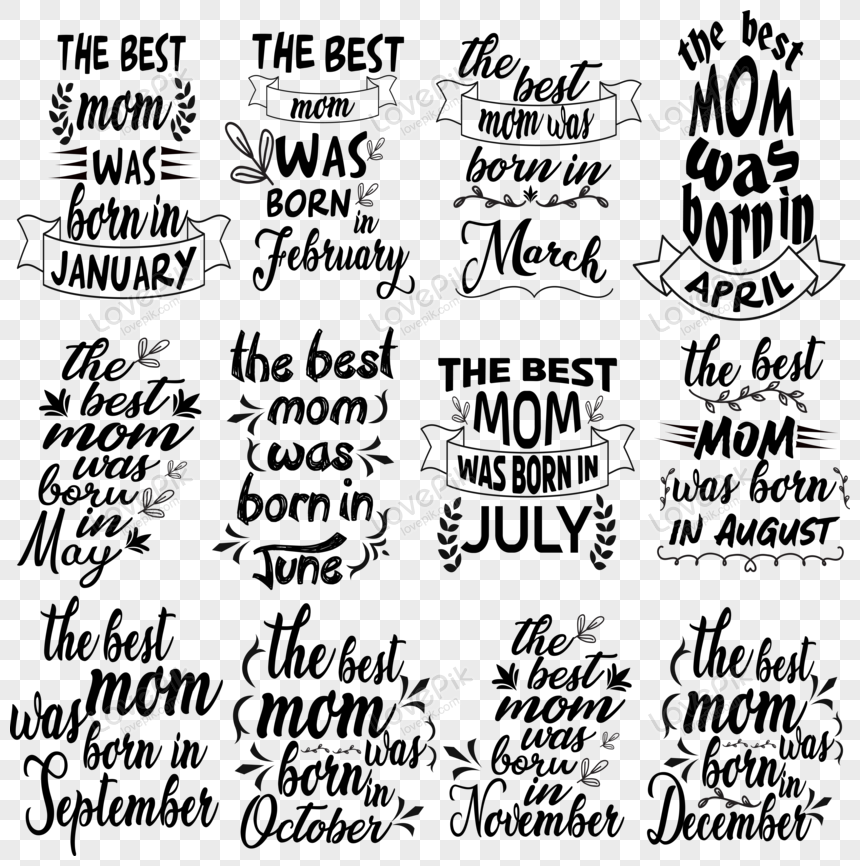 THE BEST
mom
WAS
born in
JANUARY
THE BEST
mom
WAS
BORN
in
February
the
best
mom was
born in
March
the best
MOM
was
born in
APRIL
the
best
mom
was
born
in
May
the best
mom
was
born in
June
THE BEST
MOM
WAS BORN IN
JULY
the best
MOM
was born
IN AUGUST
the best
mom
was
born in
September
the best
mom
was
born
in
October
the
best
mom
was
born
in
November
the best
mom
was
born
in
December
LovePik
lovepik.com